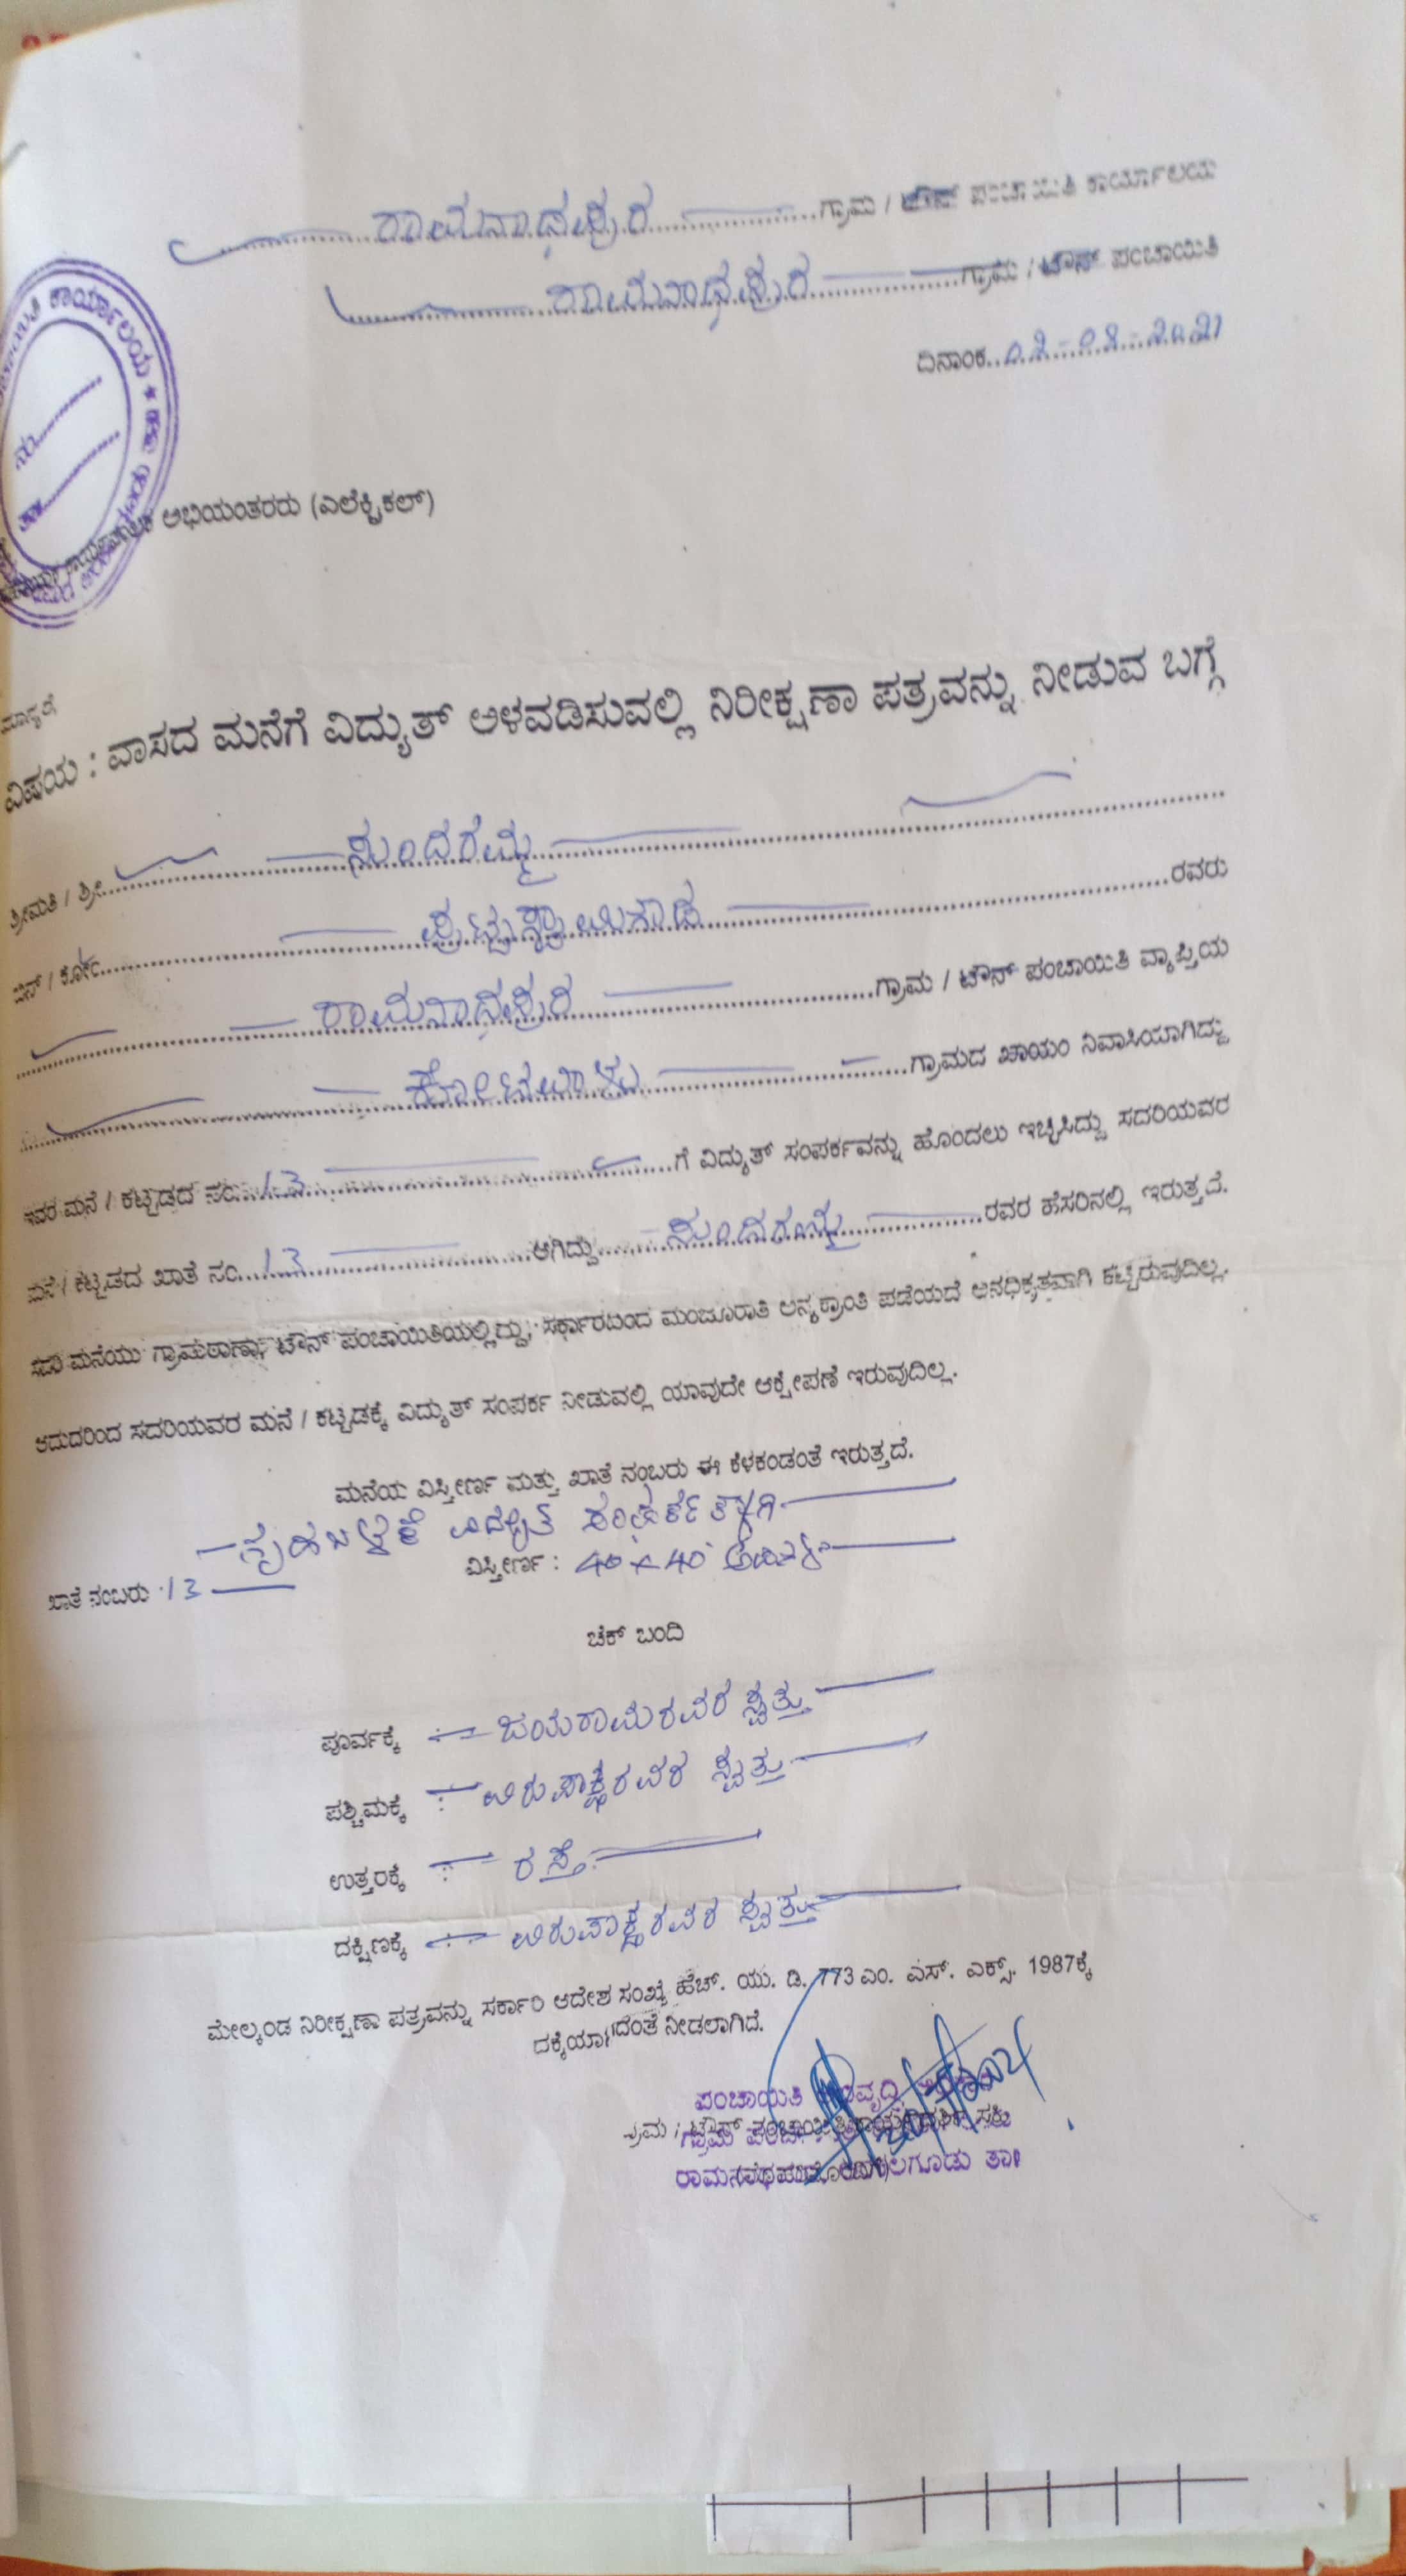 ರಾಮನಾಥಪುರ ಗ್ರಾಮ / ಟೌನ್ ಪಂಚಾಯಿತಿ ಕಾರ್ಯಾಲಯ
ರಾಮನಾಥಪುರ ಗ್ರಾಮ / ಟೌನ್ ಪಂಚಾಯಿತಿ
ದಿನಾಂಕ..02-02-2021
ಕಾರ್ಯಾಲಯ
ಅಭಿಯಂತರರು (ಎಲೆಕ್ಟ್ರಿಕಲ್)
ಮಾನ್ಯರೆ
ವಿಷಯ : ವಾಸದ ಮನೆಗೆ ವಿದ್ಯುತ್ ಅಳವಡಿಸುವಲ್ಲಿ ನಿರೀಕ್ಷಣಾ ಪತ್ರವನ್ನು ನೀಡುವ ಬಗ್ಗೆ
ಶ್ರೀಮತಿ / ಶ್ರೀ. ಸುಂದರಮ್ಮ
ಬಿನ್ / ಕೋಂ ಪುಟ್ಟಸ್ವಾಮಿಗೌಡ ರವರು
ರಾಮನಾಥಪುರ ಗ್ರಾಮ / ಟೌನ್ ಪಂಚಾಯಿತಿ ವ್ಯಾಪ್ತಿಯ
ಕೋಟವಾಳು ಗ್ರಾಮದ ಖಾಯಂ ನಿವಾಸಿಯಾಗಿದ್ದು
ಇವರ ಮನೆ / ಕಟ್ಟಡದ ನಂ. 13 ಗೆ ವಿದ್ಯುತ್ ಸಂಪರ್ಕವನ್ನು ಹೊಂದಲು ಇಚ್ಛಿಸಿದ್ದು ಸದರಿಯವರ
ಮನೆ / ಕಟ್ಟಡದ ಖಾತೆ ನಂ. 13 ಆಗಿದ್ದು ಸುಂದರಮ್ಮ ರವರ ಹೆಸರಿನಲ್ಲಿ ಇರುತ್ತದೆ.
ಸದರಿ ಮನೆಯು ಗ್ರಾಮಠಾಣಾ/ ಟೌನ್ ಪಂಚಾಯಿತಿಯಲ್ಲಿದ್ದು, ಸರ್ಕಾರದಿಂದ ಮಂಜೂರಾತಿ ಅನ್ಯಕ್ರಾಂತಿ ಪಡೆಯದೆ ಅನಧಿಕೃತವಾಗಿ ಕಟ್ಟಿರುವುದಿಲ್ಲ.
ಆದುದರಿಂದ ಸದರಿಯವರ ಮನೆ / ಕಟ್ಟಡಕ್ಕೆ ವಿದ್ಯುತ್ ಸಂಪರ್ಕ ನೀಡುವಲ್ಲಿ ಯಾವುದೇ ಆಕ್ಷೇಪಣೆ ಇರುವುದಿಲ್ಲ.
ಮನೆಯ ವಿಸ್ತೀರ್ಣ ಮತ್ತು ಖಾತೆ ನಂಬರು ಈ ಕೆಳಕಂಡಂತೆ ಇರುತ್ತದೆ.
ಗೃಹಬಳಕೆ ವಿದ್ಯುತ್ ಸಂಪರ್ಕಕ್ಕಾಗಿ
ಖಾತೆ ನಂಬರು 13 ವಿಸ್ತೀರ್ಣ : 40 × 40
ಚೆಕ್ ಬಂದಿ
ಪೂರ್ವಕ್ಕೆ : ಜಯರಾಮರವರ ಸ್ವತ್ತು
ಪಶ್ಚಿಮಕ್ಕೆ : ವಿರುಪಾಕ್ಷರವರ ಸ್ವತ್ತು
ಉತ್ತರಕ್ಕೆ : ರಸ್ತೆ
ದಕ್ಷಿಣಕ್ಕೆ : ವಿರುಪಾಕ್ಷರವರ ಸ್ವತ್ತು
ಮೇಲ್ಕಂಡ ನಿರೀಕ್ಷಣಾ ಪತ್ರವನ್ನು ಸರ್ಕಾರಿ ಆದೇಶ ಸಂಖ್ಯೆ ಹೆಚ್. ಯು. ಡಿ. 773 ಎಂ. ಎಸ್. ಎಕ್ಸ್. 1987ಕ್ಕೆ
ನೀಡಲಾಗಿದೆ.
ಪಂಚಾಯತಿ
ಗ್ರಾಮ